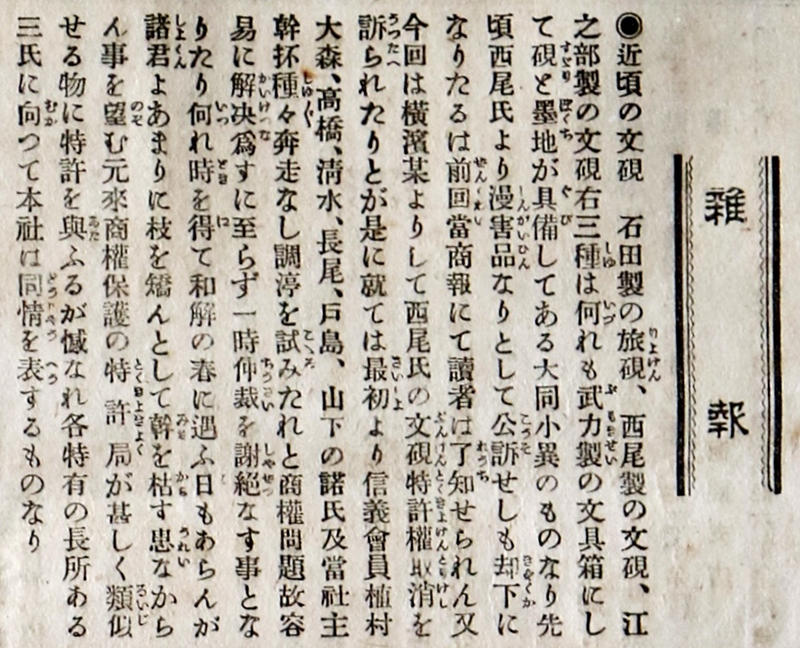 雜報
◉近頃の文硯　石田製の旅硯、西尾製の文硯、江
之部製の文硯右三種は何れも武力製の文具箱にし
て硯と墨地が具備してある大同小異のものなり先
頃西尾氏より漫害品なりとして公訴せしも却下に
なりたるは前回當商報にて讀者は了知せられん又
今回は橫濱某よりして西尾氏の文硯特許權取消を
訴られたりとが是に就ては最初より信義會員植村
大森、高橋、淸水、長尾、戸島、山下の諸氏及當社主
幹抔種々奔走なし調停を試みたれと商權問題故容
易に解决爲すに至らず一時仲裁を謝絕なす事とな
りたり何れ時を得て和解の春に遇ふ日もあらんが
諸君よあまりに枝を矯んとして幹を枯す思なから
ん事を望む元來商權保護の特許局が甚しく類似
せる物に特許を與ふるが憾なれ各特有の長所ある
三氏に向つて本社は同情を表するものなり